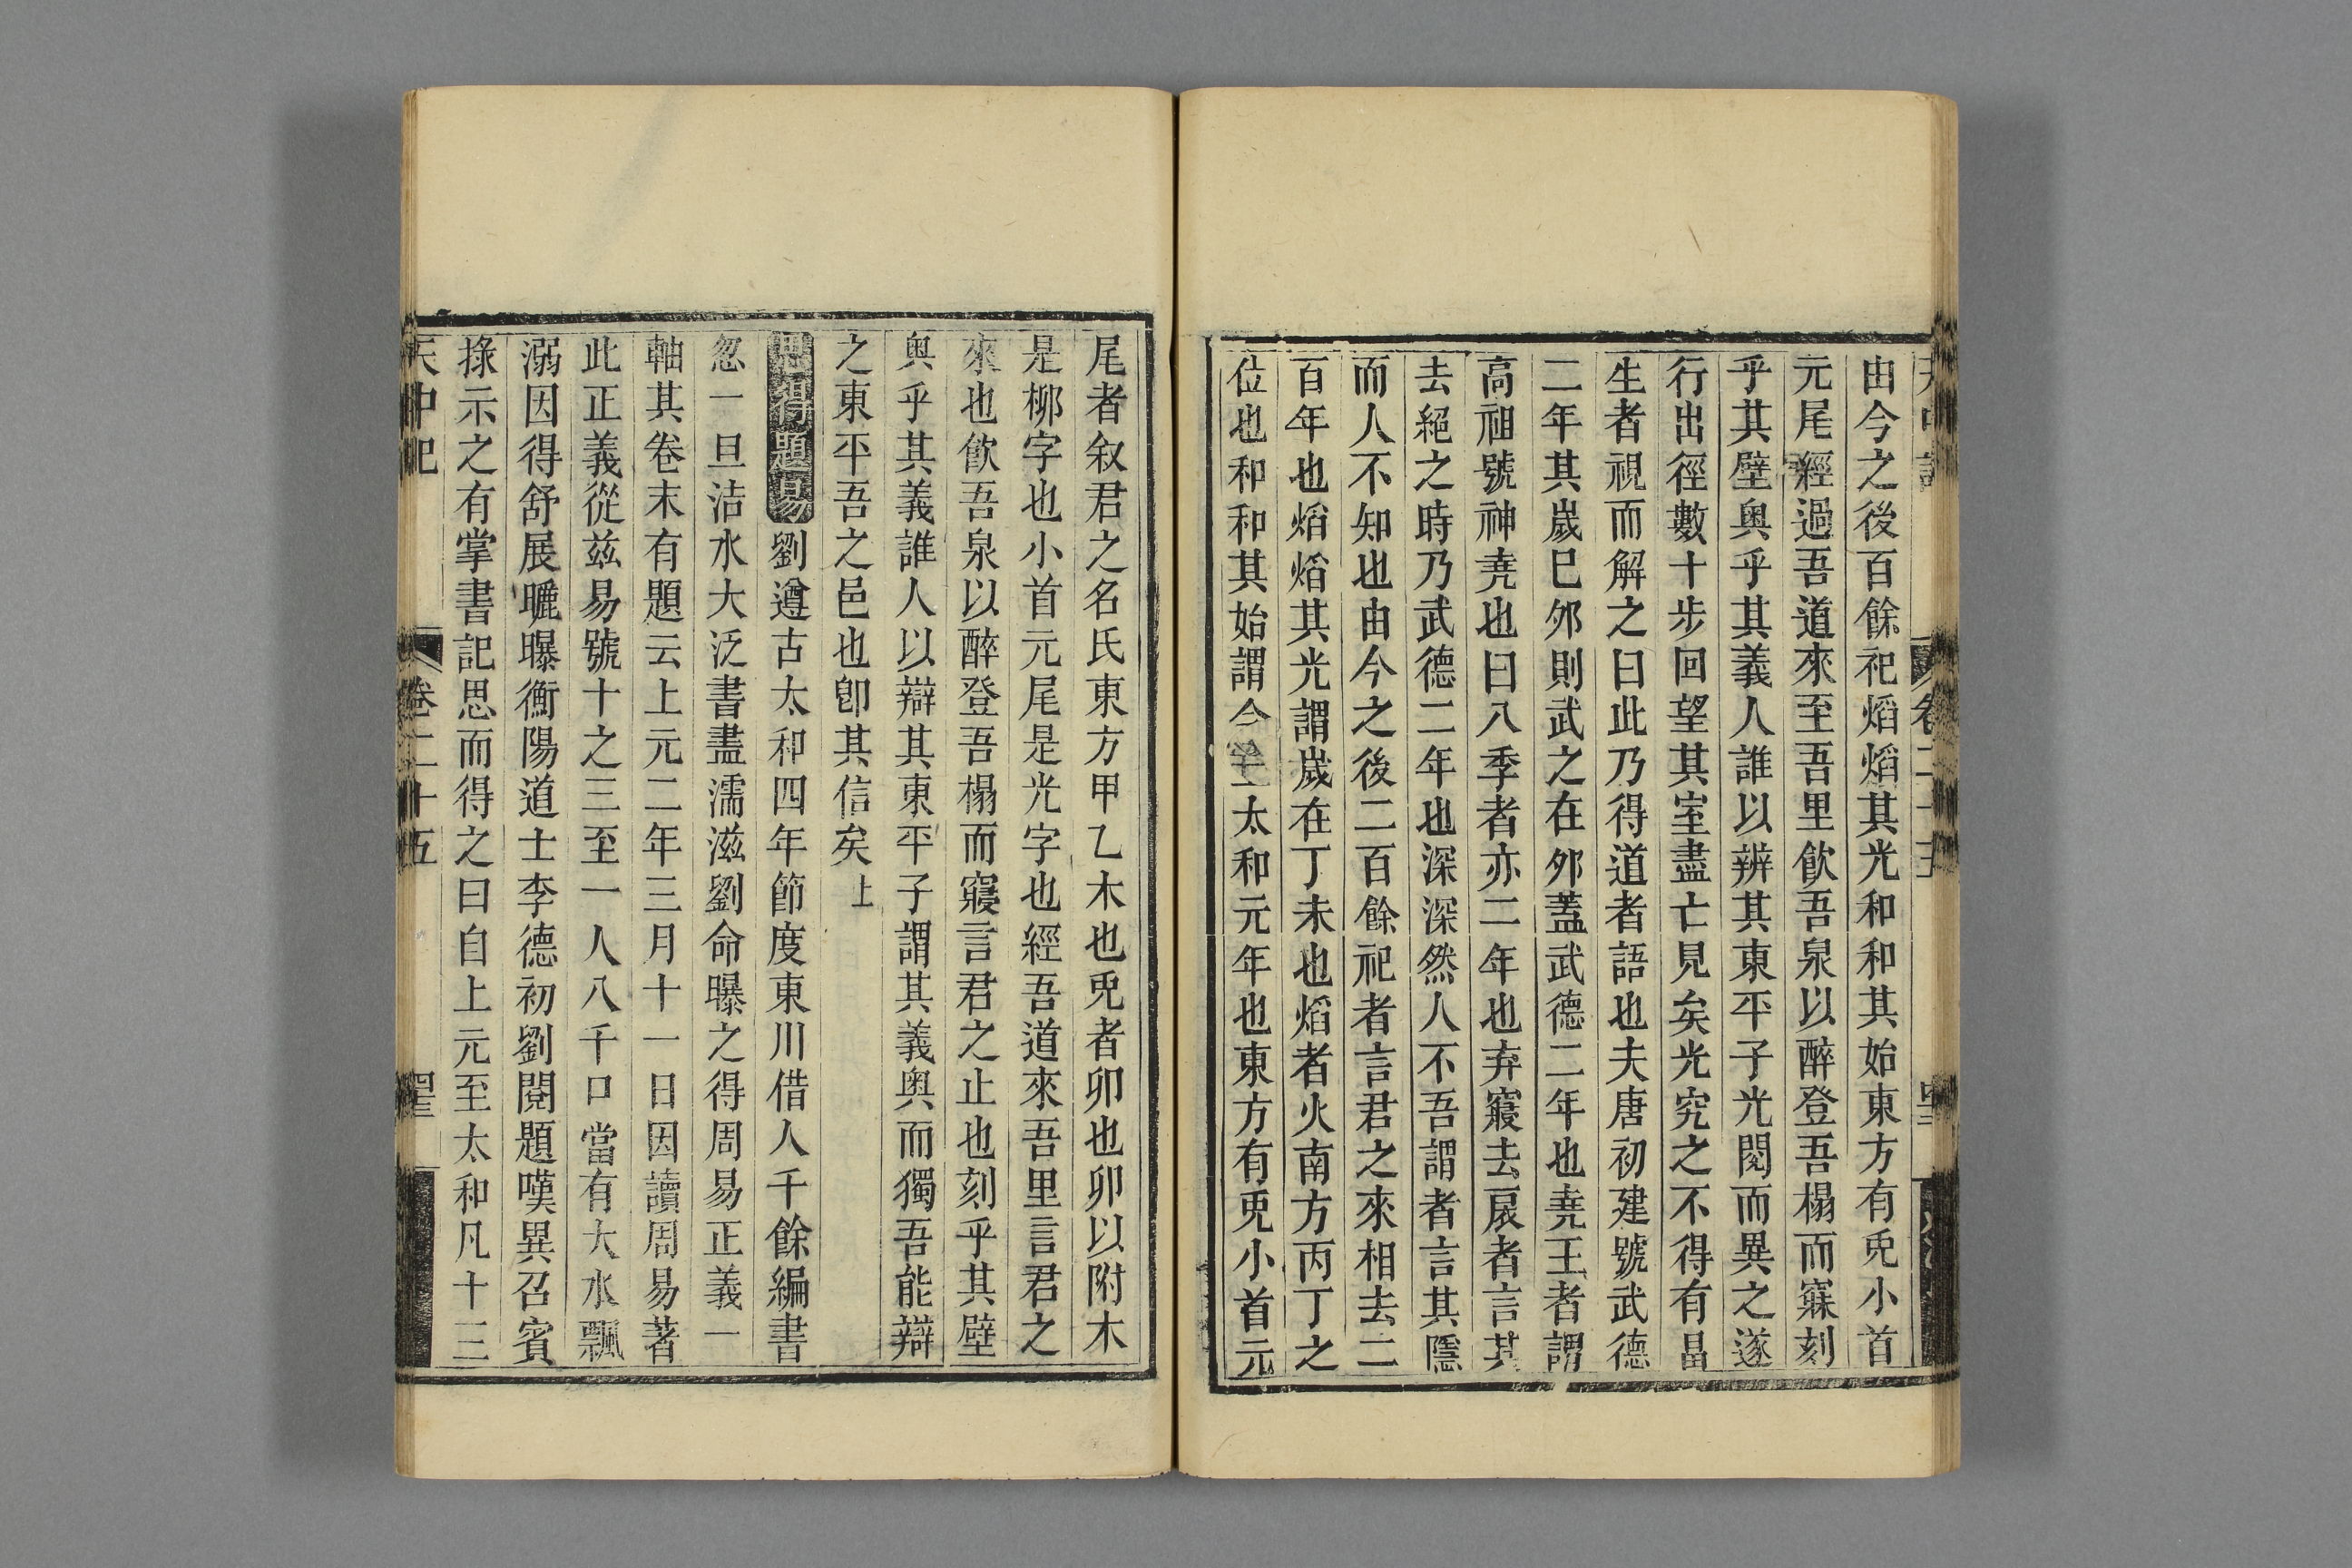 由今之後百餘祀熖熖其光和和其始東方有兎小首
元尾經過吾道來至吾里飲吾泉以醉登吾榻而寐刻
乎其壁奧乎其義人誰以辨其東平子光閱而異之遂
行出徑數十步回望其室盡亡見矣光究之不得有晶
生者視而解之曰此乃得道者語也夫唐初建號武德
二年其歲巳夘則武之在夘蓋武德二年也堯王者謂
高祖號神堯也曰八季者亦二年也弃寢去扆者言其
去絕之時乃武德二年也深深然人不吾謂者言其隱
而人不知也由今之後二百餘祀者言君之來相去二
百年也熖熖其光謂歲在丁未也熖者火南方丙丁之
位也和和其始謂今太和元年也東方有兎小首元
尾者叙君之名氏東方甲乙木也兎者卯也卯以附木
是桺字也小首元尾是光字也經吾道來吾里言君之
來也飲吾泉以醉登吾榻而寢言君之止也刻乎其壁
奧乎其義誰人以辯其東平子謂其義奧而獨吾能辯
之東平吾之邑也卽其信矣上
思得題易劉遵古太和四年節度東川借人千餘編書
忽一旦洁水大泛書盡濡滋劉命曝之得周易正義一
軸其卷末有題云上元二年三月十一日因讀周易著
此正義從兹易號十之三至一人八千口當有大水飄
溺因得舒展曬曝衡陽道士李德初劉閱題嘆異召賓
掾示之有掌書記思而得之曰自上元至太和凡十三
天中記 卷二十五